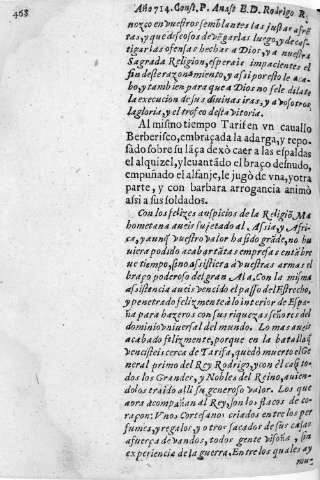 468
Año 714. Const. P. Anast E. D. Rodrigo R.
nozco en vuestros semblantes las justas afrẽ
tas, y que deseosos de vẽgarlas luego, y de cas-
tigar las ofensas hechas a Dios, y a nuestra
Sagrada Religion, esperais impacientes el
fin deste razonamiento, y assi por esto le aca-
bo, y tambien para que a Dios no se le dilate
la execucion de sus diuinas iras, y a vosotros
la gloria, y el trofeo desta vitoria.
Al mismo tiempo Tarif en vn cauallo
Berberisco, embraçada la adarga, y repo-
sado sobre su lãça dexò caer a las espaldas
el alquizel, y leuantãdo el braço desnudo,
empuñado el alfanje, le jugò de vna, y otra
parte, y con barbara arrogancia animò
assi a sus soldados.
Con los felizes auspicios de la Religiõ Ma
hometana aueis sujetado al Assia, y Afri-
ca, y aunq̃ vuestro valor ha sido grãde, no hu
uiera podido acabar tãtas empresas en tã bre
ue tiempo, si no assistiera à vuestras armas el
braço poderoso del gran Ala. Con la misma
assistencia aueis vencido el passo del Estrecho,
y penetrado felizmente a lo interior de Espa-
ña para hazeros con sus riquezas señores del
dominio vniuersal del mundo. Lo mas aueis
acabado felizmente, porque en la batalla q̃
vencisteis cerca de Tarifa, quedò muerto el Ge
neral primo del Rey Rodrigo, y con èl casi to-
dos los Grandes, y Nobles del Reino, auien-
dolos traido alli su generoso valor. Los que
aora acompañan al Rey, son los flacos de co-
raçon: Vnos Cortesanos criados entre los per
fumes, y regalos, y otros sacados de sus casas
a fuerça de vandos, todos gente visoña, sin
experiencia de la guerra. Entre los quales ay